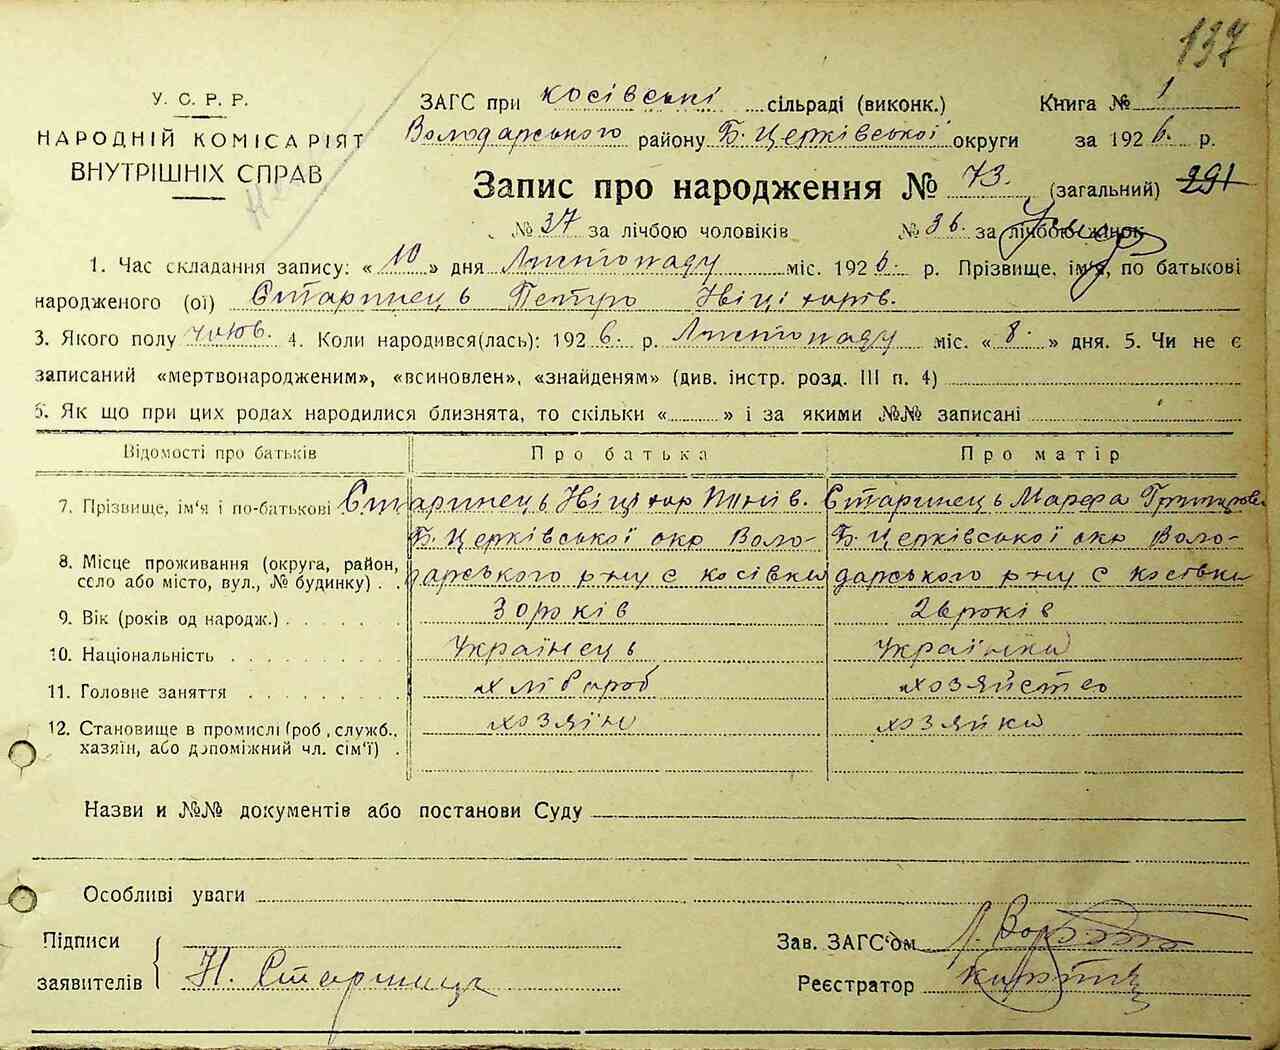 137
У. С. Р. Р.
НАРОДНІЙ КОМІСАРІЯТ
ВНУТРІШНІХ СПРАВ
ЗАГС при Косівські сільраді (виконк.) Книга № 1
Володарського району Б. Церківської округи за 1926. р.
Запис про народження № 73. (загальний) 291
№ 37 за лічбою чоловіків № 36. за лічбою жінок
1. Час складання запису: «10» дня Листопаду міс. 1926. р. Прізвище, ім'я, по батькові
народженого (ої) Старинець Петро
3. Якого полу чолов. 4. Коли народився(лась): 1926. р. Листопаду міс. «8.» дня. 5. Чи не є
записаний «мертвонародженим», «всиновлен», «знайденям» (див. інстр. розд. III п. 4)
6. Як що при цих родах народилися близнята, то скільки «» і за якими №№ записані
Відомості про батьків Про батька Про матір
7. Прізвище, ім'я і по-батькові Старинець Старинець Марфа
8. Місце проживання (округа, район, село або місто, вул., № будинку) Б. Церківської окр Воло- Б. Церківської окр Воло-
дарського р-ну с Косівки дарського р-ну с Косівки
9. Вік (років од народж.) 30 років 26 років
10. Національність Українець Українка
11. Головне заняття хлівороб хозяйство
12. Становище в промислі (роб., служб., хазяїн, або допоміжний чл. сім'ї) хозяїн хозяйка
Назви и №№ документів або постанови Суду
Особливі уваги
Підписи
заявителів Н. Старинець
Зав. ЗАГС'ом
Реєстратор